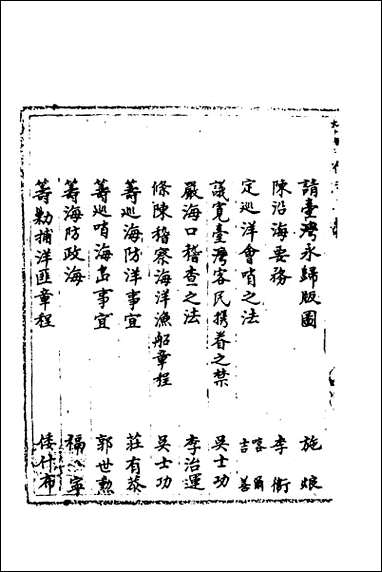 請臺灣永歸版圖 施娘
陳沿海要務 李衛
定巡洋會哨之法 喀爾吉善
議寛臺灣客民携眷之禁 吳士功
嚴海口稽查之法 李治運
條陳稽察海洋漁船章程 吳士功
籌巡海防洋事宜 莊有恭
籌巡哨海島事宜 郭世勲
籌海防政海 福寧
籌勦捕洋匪章程 倭什布